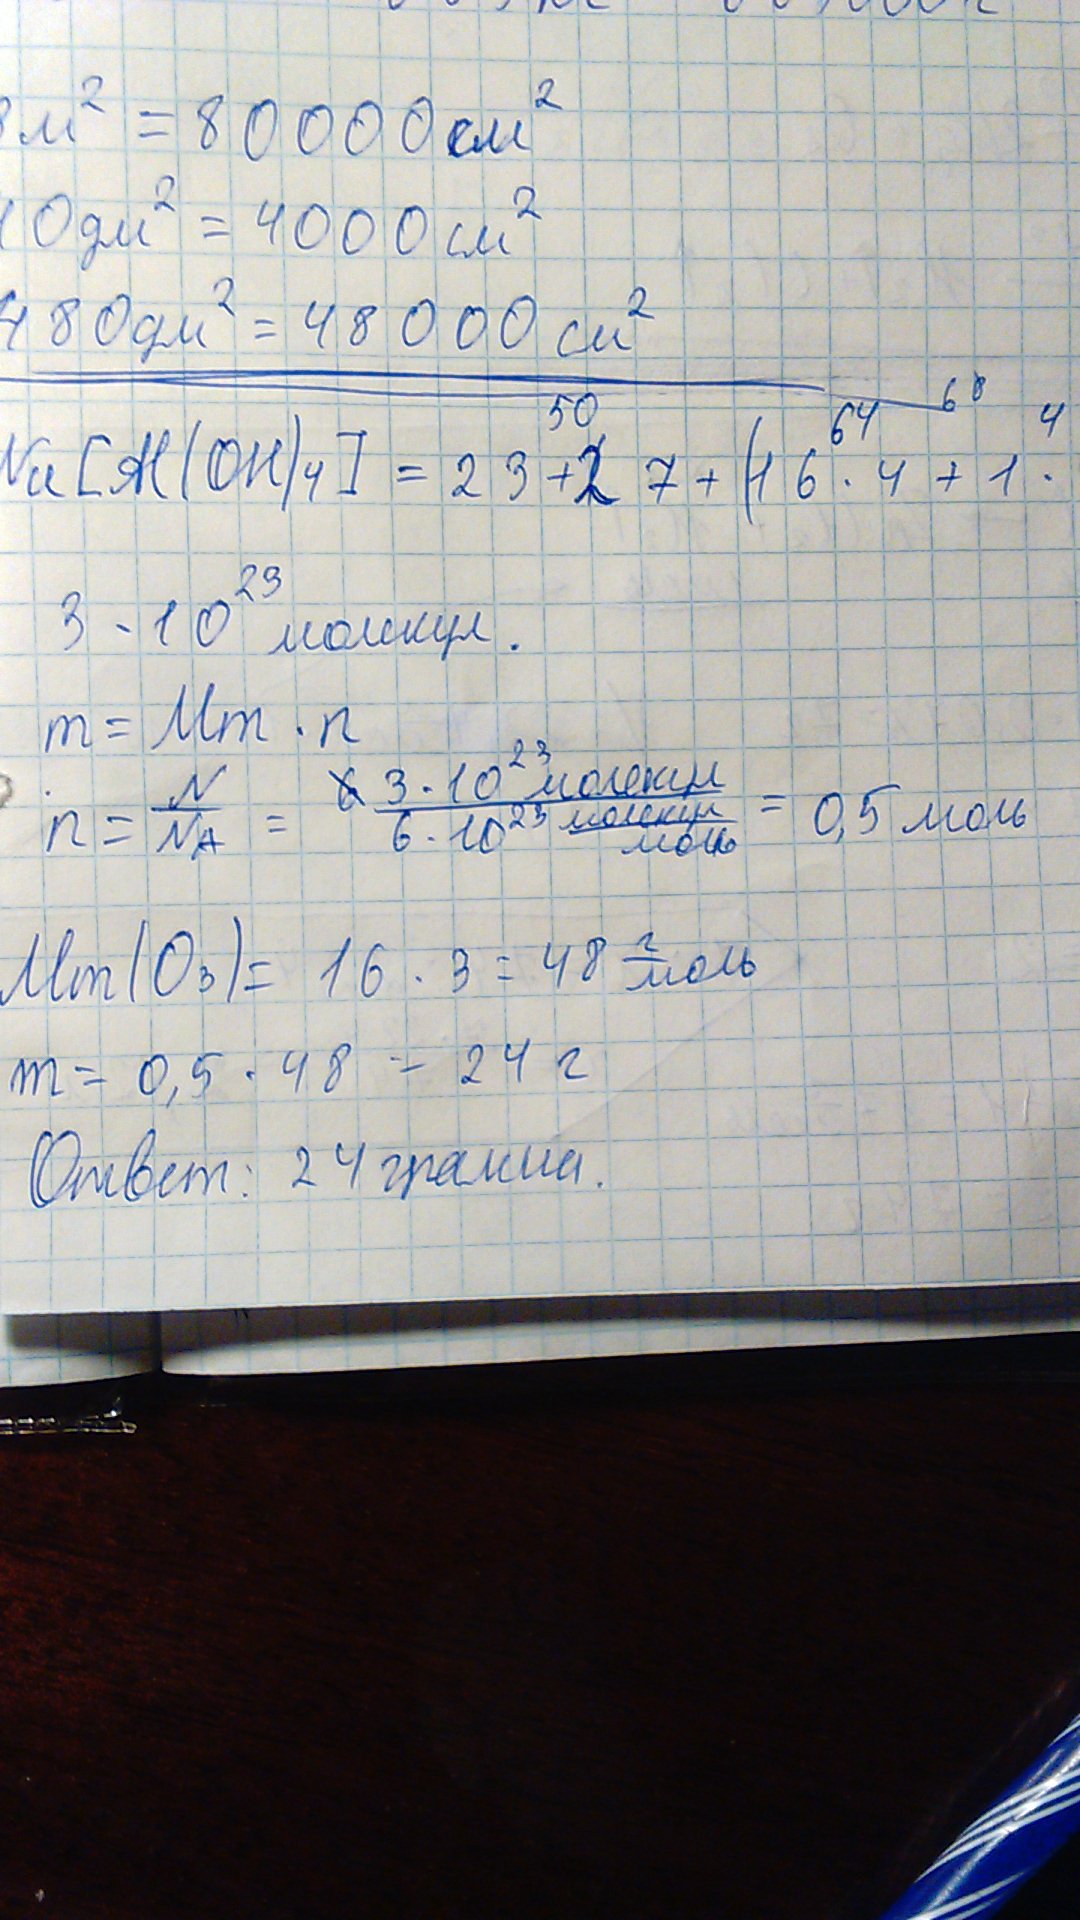 8м² = 80000см²
40дм² = 4000см²
480дм² = 48000см²
50 64 68 4
Na[Al(OH)₄] = 23+27+(16·4+1·
3·10²³ молекул.
m = Mm · n
n = N/NA = 3·10²³молекул / 6·10²³ молекул/моль = 0,5 моль
Mm(O₃) = 16·3 = 48 г/моль
m = 0,5·48 = 24 г
Ответ: 24 грамма.